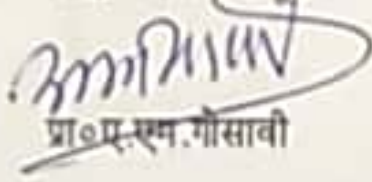 प्रा०ए.एम.गोसावी